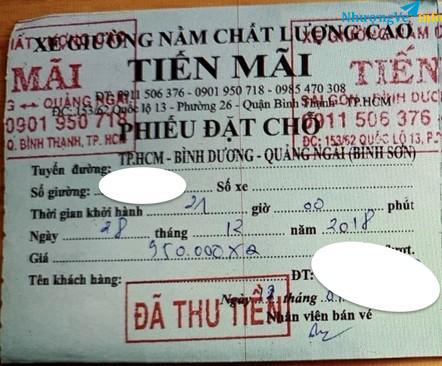 NhượngVé
XE GIƯỜNG NẰM CHẤT LƯỢNG CAO
TIẾN MÃI
ĐT: 0911 506 376 - 0901 950 718 - 0985 470 308
ĐC: 153/62 Quốc lộ 13 - Phường 26 - Quận Bình Thạnh - TP.HCM
PHIẾU ĐẶT CHỖ
TP.HCM - BÌNH DƯƠNG - QUẢNG NGÃI (BÌNH SƠN)
Tuyến đường:
Số giường: Số xe
Thời gian khởi hành 21 giờ 00 phút
Ngày 28 tháng 12 năm 2018
Giá 950.000 X 2
Tên khách hàng: ĐT:
Ngày tháng
Nhân viên bán vé
MÃI
QUẢNG NGÃI
0901 950 718
Q. BÌNH THẠNH, TP. HCM
TIẾN
SÀI GÒN - BÌNH DƯƠ
0911 506 376
ĐC: 153/62 QUỐC LỘ 13, P.
ĐÃ THU TIỀN